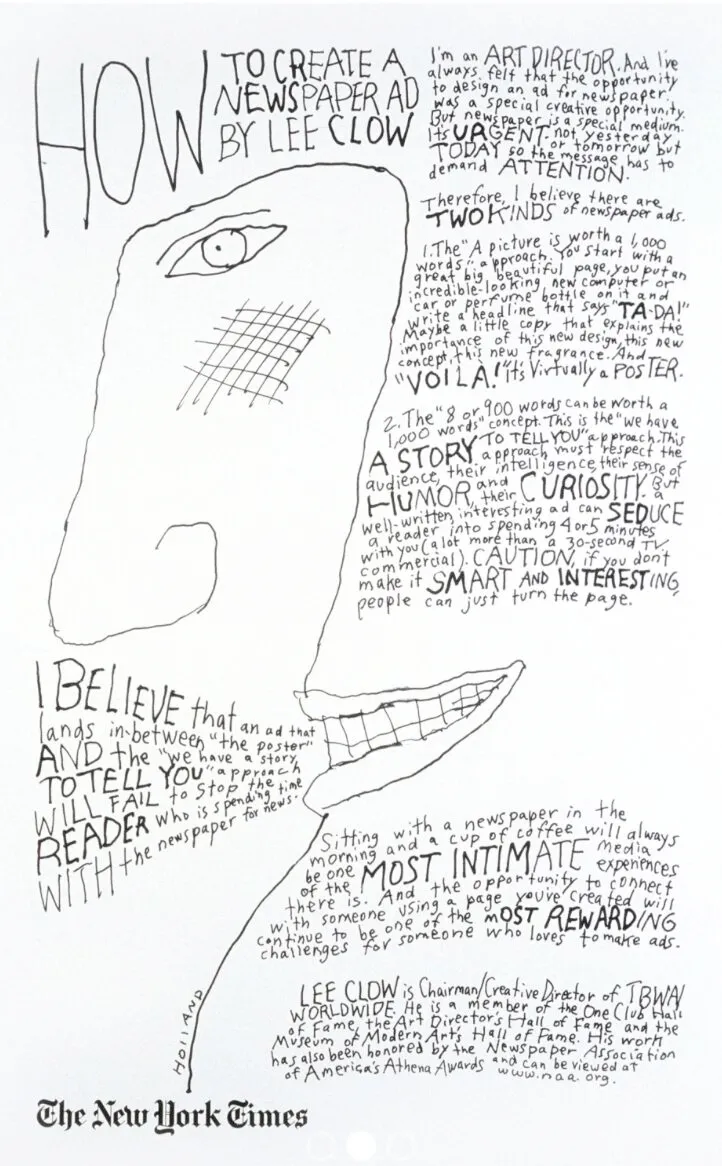 HOW TO CREATE A
NEWSPAPER AD
BY LEE CLOW
I'm an ART DIRECTOR. And I've
always felt that the opportunity
to design an ad for newspaper
was a special creative opportunity.
But newspaper is a special medium.
Its URGENT. not yesterday
or tomorrow but
TODAY so the message has to
demand ATTENTION.
Therefore, I believe there are
TWO KINDS of newspaper ads.
1. The "A picture is worth a 1,000
words" approach. You start with a
great big, beautiful page, you put an
incredible-looking new computer or
car or perfume bottle on it and
write a headline that says "TA-DA!"
Maybe a little copy that explains the
importance of this new design, this new
concept, this new fragrance. And
"VOILÀ!" It's Virtually a POSTER.
2. The "8 or 900 words can be worth a
1,000 words" concept. This is the "we have
A STORY TO TELL YOU" approach. This
approach must respect the
audience, their intelligence, their sense of
HUMOR, and their CURIOSITY. But a
well-written, interesting ad can SEDUCE
a reader into spending 4 or 5 minutes
with you (a lot more than a 30-second TV
commercial). CAUTION, if you don't
make it SMART AND INTERESTING,
people can just turn the page.
I BELIEVE that an ad that
lands in-between "the poster"
AND the "we have a story
TO TELL YOU" approach
WILL FAIL to stop the
READER who is spending time
WITH the newspaper for news.
Sitting with a newspaper in the
morning and a cup of coffee will always
be one of the MOST INTIMATE media experiences
there is. And the opportunity to connect
with someone using a page you've created will
continue to be one of the mOST REWARDING
challenges for someone who loves to make ads.
LEE CLOW is Chairman/Creative Director of TBWA/
WORLDWIDE. He is a member of the One Club Hall
of Fame, the Art Director's Hall of Fame and the
Museum of Modern Art's Hall of Fame. His work
has also been honored by the Newspaper Association
of America's Athena Awards and can be viewed at
www.naa.org.
HOLLAND
The New York Times